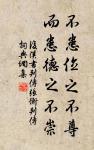 不患位之不尊
而患德之不崇
後漢書列傳張衡列傳
詞典網集